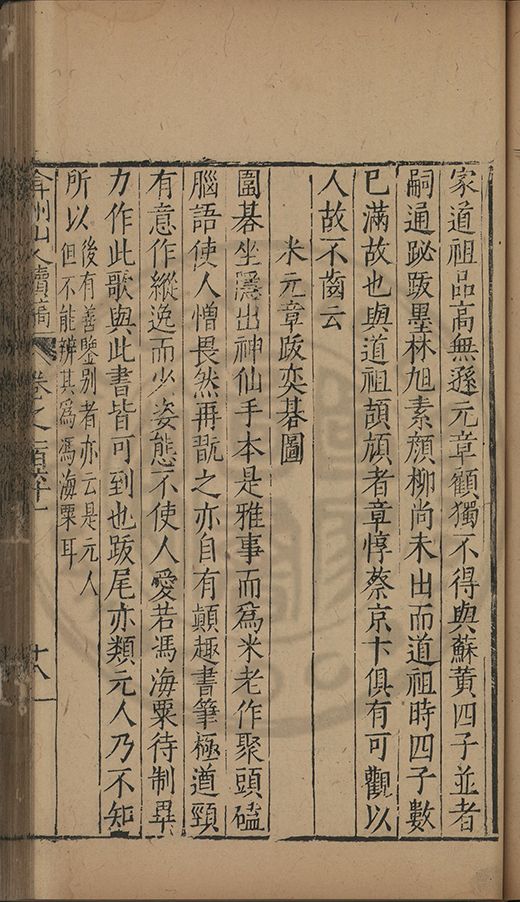 家道祖品高無遜元章顧獨不得與蘇黃四子並者
嗣通跋墨林旭素顏柳尚未出而道祖時四子數
已滿故也與道祖頡頏者章惇蔡京卞俱有可觀以
人故不齒云
米元章跋奕碁圖
圍碁坐隱出神仙手本是雅事而爲米老作聚頭磕
腦語使人憎畏然再翫之亦自有顛趣書筆極遒頸
有意作縱逸而少姿態不使人愛若馮海粟待制畢
力作此歌與此書皆可到也跋尾亦類元人乃不知
所以後有善鑒別者亦云是元人
但不能辨其爲馮海粟耳
弇州山人續稿
卷之一百六十一
十八